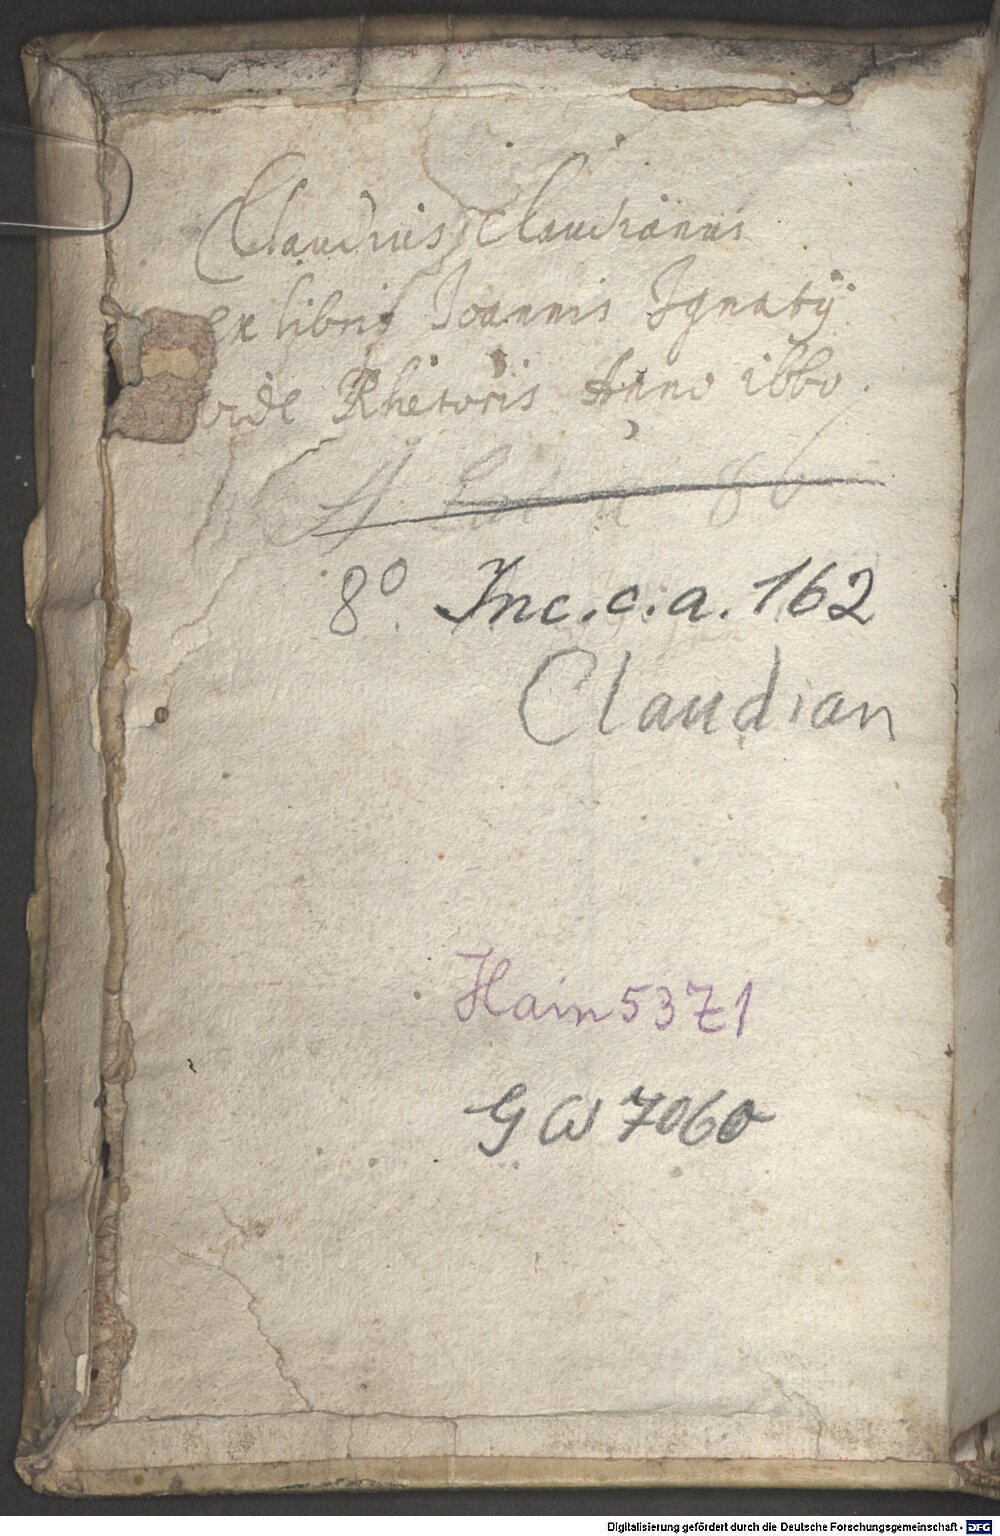 Claudius Claudianus
ex libris Joannis Ignatij
Rhetoris Anno 1660.
8°. Inc.c.a.162
Claudian
Hain 5371
GW 7060
Digitalisierung gefördert durch die Deutsche Forschungsgemeinschaft - DFG